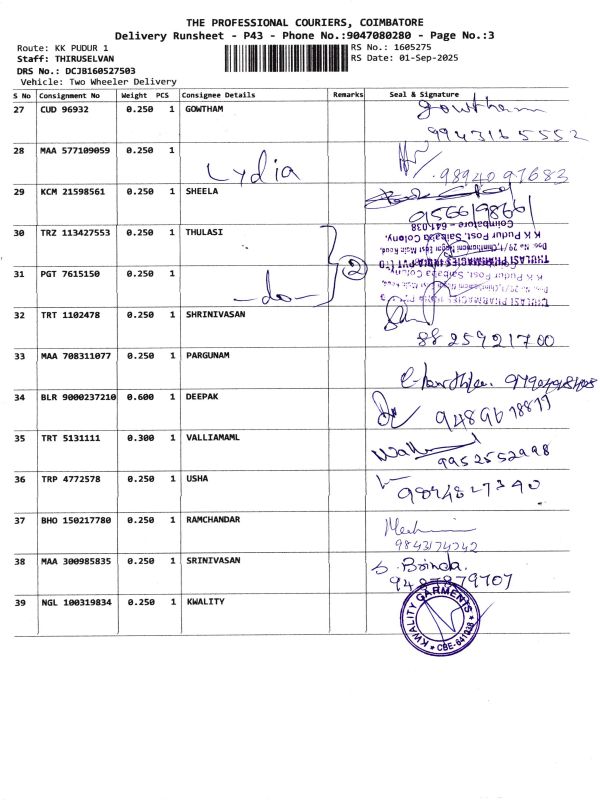 THE PROFESSIONAL COURIERS, COIMBATORE
Delivery Runsheet - P43 - Phone No.:9047080280 - Page No.:3
Route: KK PUDUR 1 RS No.: 1605275
Staff: THIRUSELVAN RS Date: 01-Sep-2025
DRS No.: DCJB160527503
Vehicle: Two Wheeler Delivery
S No Consignment No Weight PCS Consignee Details Remarks Seal & Signature
27 CUD 96932 0.250 1 GOWTHAM gowtham
9943165552
28 MAA 577109059 0.250 1 Lydia 9894097683
29 KCM 21598561 0.250 1 SHEELA
30 TRZ 113427553 0.250 1 THULASI
2
THULASI PHARMACIES INDIA PVT LTD
Door No 29/1, Chinthamani Nagar East Main Road,
K K Pudur Post, Saibaba Colony,
Coimbatore - 641 038
31 PGT 7615150 0.250 1 -do-
32 TRT 1102478 0.250 1 SHRINIVASAN
8825921700
33 MAA 708311077 0.250 1 PARGUNAM
34 BLR 9000237210 0.600 1 DEEPAK
35 TRT 5131111 0.300 1 VALLIAMAML
9952552998
36 TRP 4772578 0.250 1 USHA
37 BHO 150217780 0.250 1 RAMCHANDAR
9843174242
38 MAA 300985835 0.250 1 SRINIVASAN S. Brinda
9487879707
39 NGL 100319834 0.250 1 KWALITY
KWALITY GARMENTS
CBE-641038